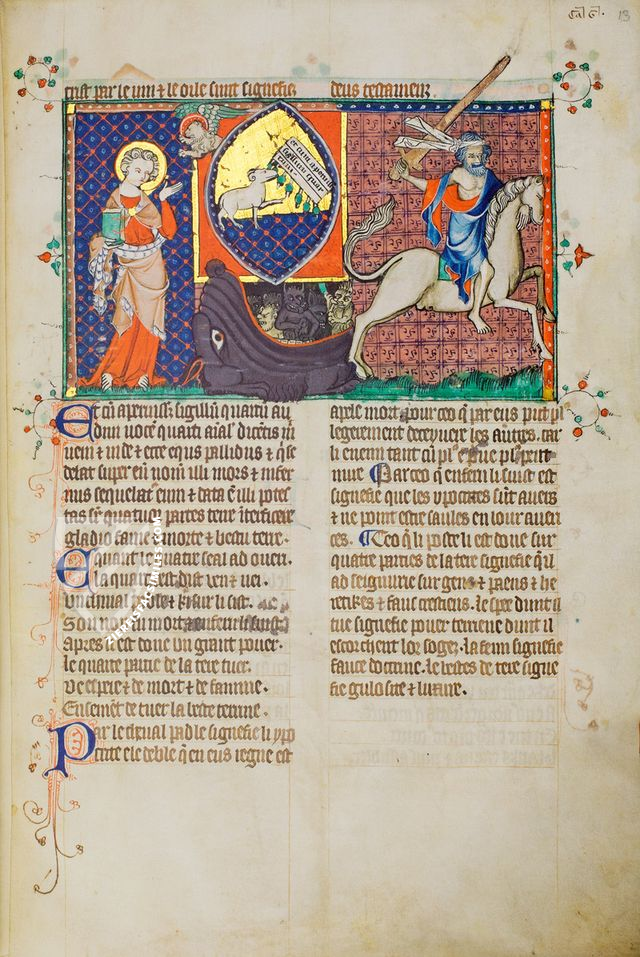 13
crist par le vin ⁊ le oile sunt signefie
deus testamenz
et cum aperuisset
sigillum quar
tum
Et cū aperuiss; sigillū quartū au
diui uocē quarti aīal dicētis
ueni ⁊ uide ⁊ ecce equs pallidus ⁊ q̄ se
debat super eū nom̄ illi mors ⁊ infer
nus sequebat᷑ eum ⁊ data ē illi potes
tas sr̄ quatuor partes terre īterficere
gladio fame ⁊ morte ⁊ bestiis terre.
E quant le quarte seal ad ouert.
E la quarte best dist ven ⁊ vei.
Vn chiual pale ⁊ ki sur li sist.
Son num mort enfern li suist
apres li est done vn grant pouer.
le quarte partie de la tere tuer.
de espee ⁊ de mort ⁊ de famine.
Ensement de tuer la beste terrine.
Par le cheual pale signefie li ypo
crite e le deble q̄ en eus regne est
apele mort pour ceo q̄ par eus puet pl
legerement deceyure les autres. car
li enemi tant cū pl᷑ peut
nuire Par ceo q̄ enfern li suist est
signefie que les ypocrites sūt auers
⁊ ne pount estre saules en lour aueri
ces. Ceo q̄ li poste li est done sur
quatre parties de la tere signefie q̄ il
ad seignurie sur gens ⁊ paens ⁊ he
retikes ⁊ faus crestiens. le spee dunt il
tue signefie pouer terriene dunt il
escorchent lor sogez. la feim signefie
fauce doctrine. le bestes de tere signe
fie glusoite ⁊ luxure.
ZIEREIS FACSIMILES.COM